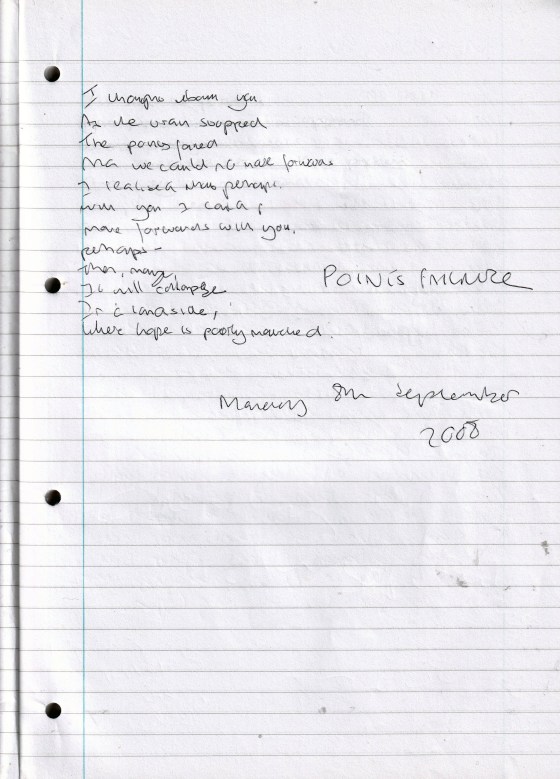 I thought about you
As the train stopped
The points failed
And we could not move forwards
I realised that perhaps,
with you I could,
move forwards with you,
perhaps -
then, maybe,
It will collapse
In a landslide,
Where hope is poorly matched.
POINTS FAILURE
Monday 8th September
2008